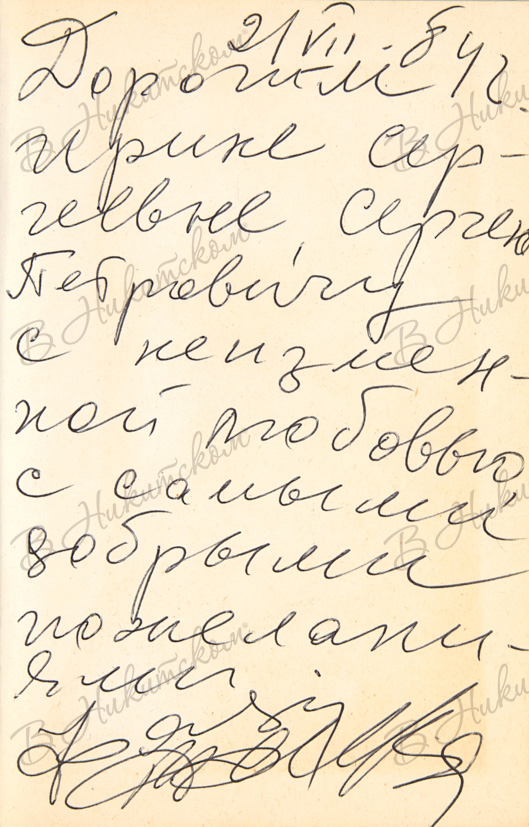 21/VII. 84 г.
Дорогим
Ирине Сер-
геевне, Сергею
Петровичу
с неизмен-
ной любовью
с самыми
добрыми
пожелани-
ями.
В Никитском
В Никитском
В Никитском
В Никитском
В Никитском